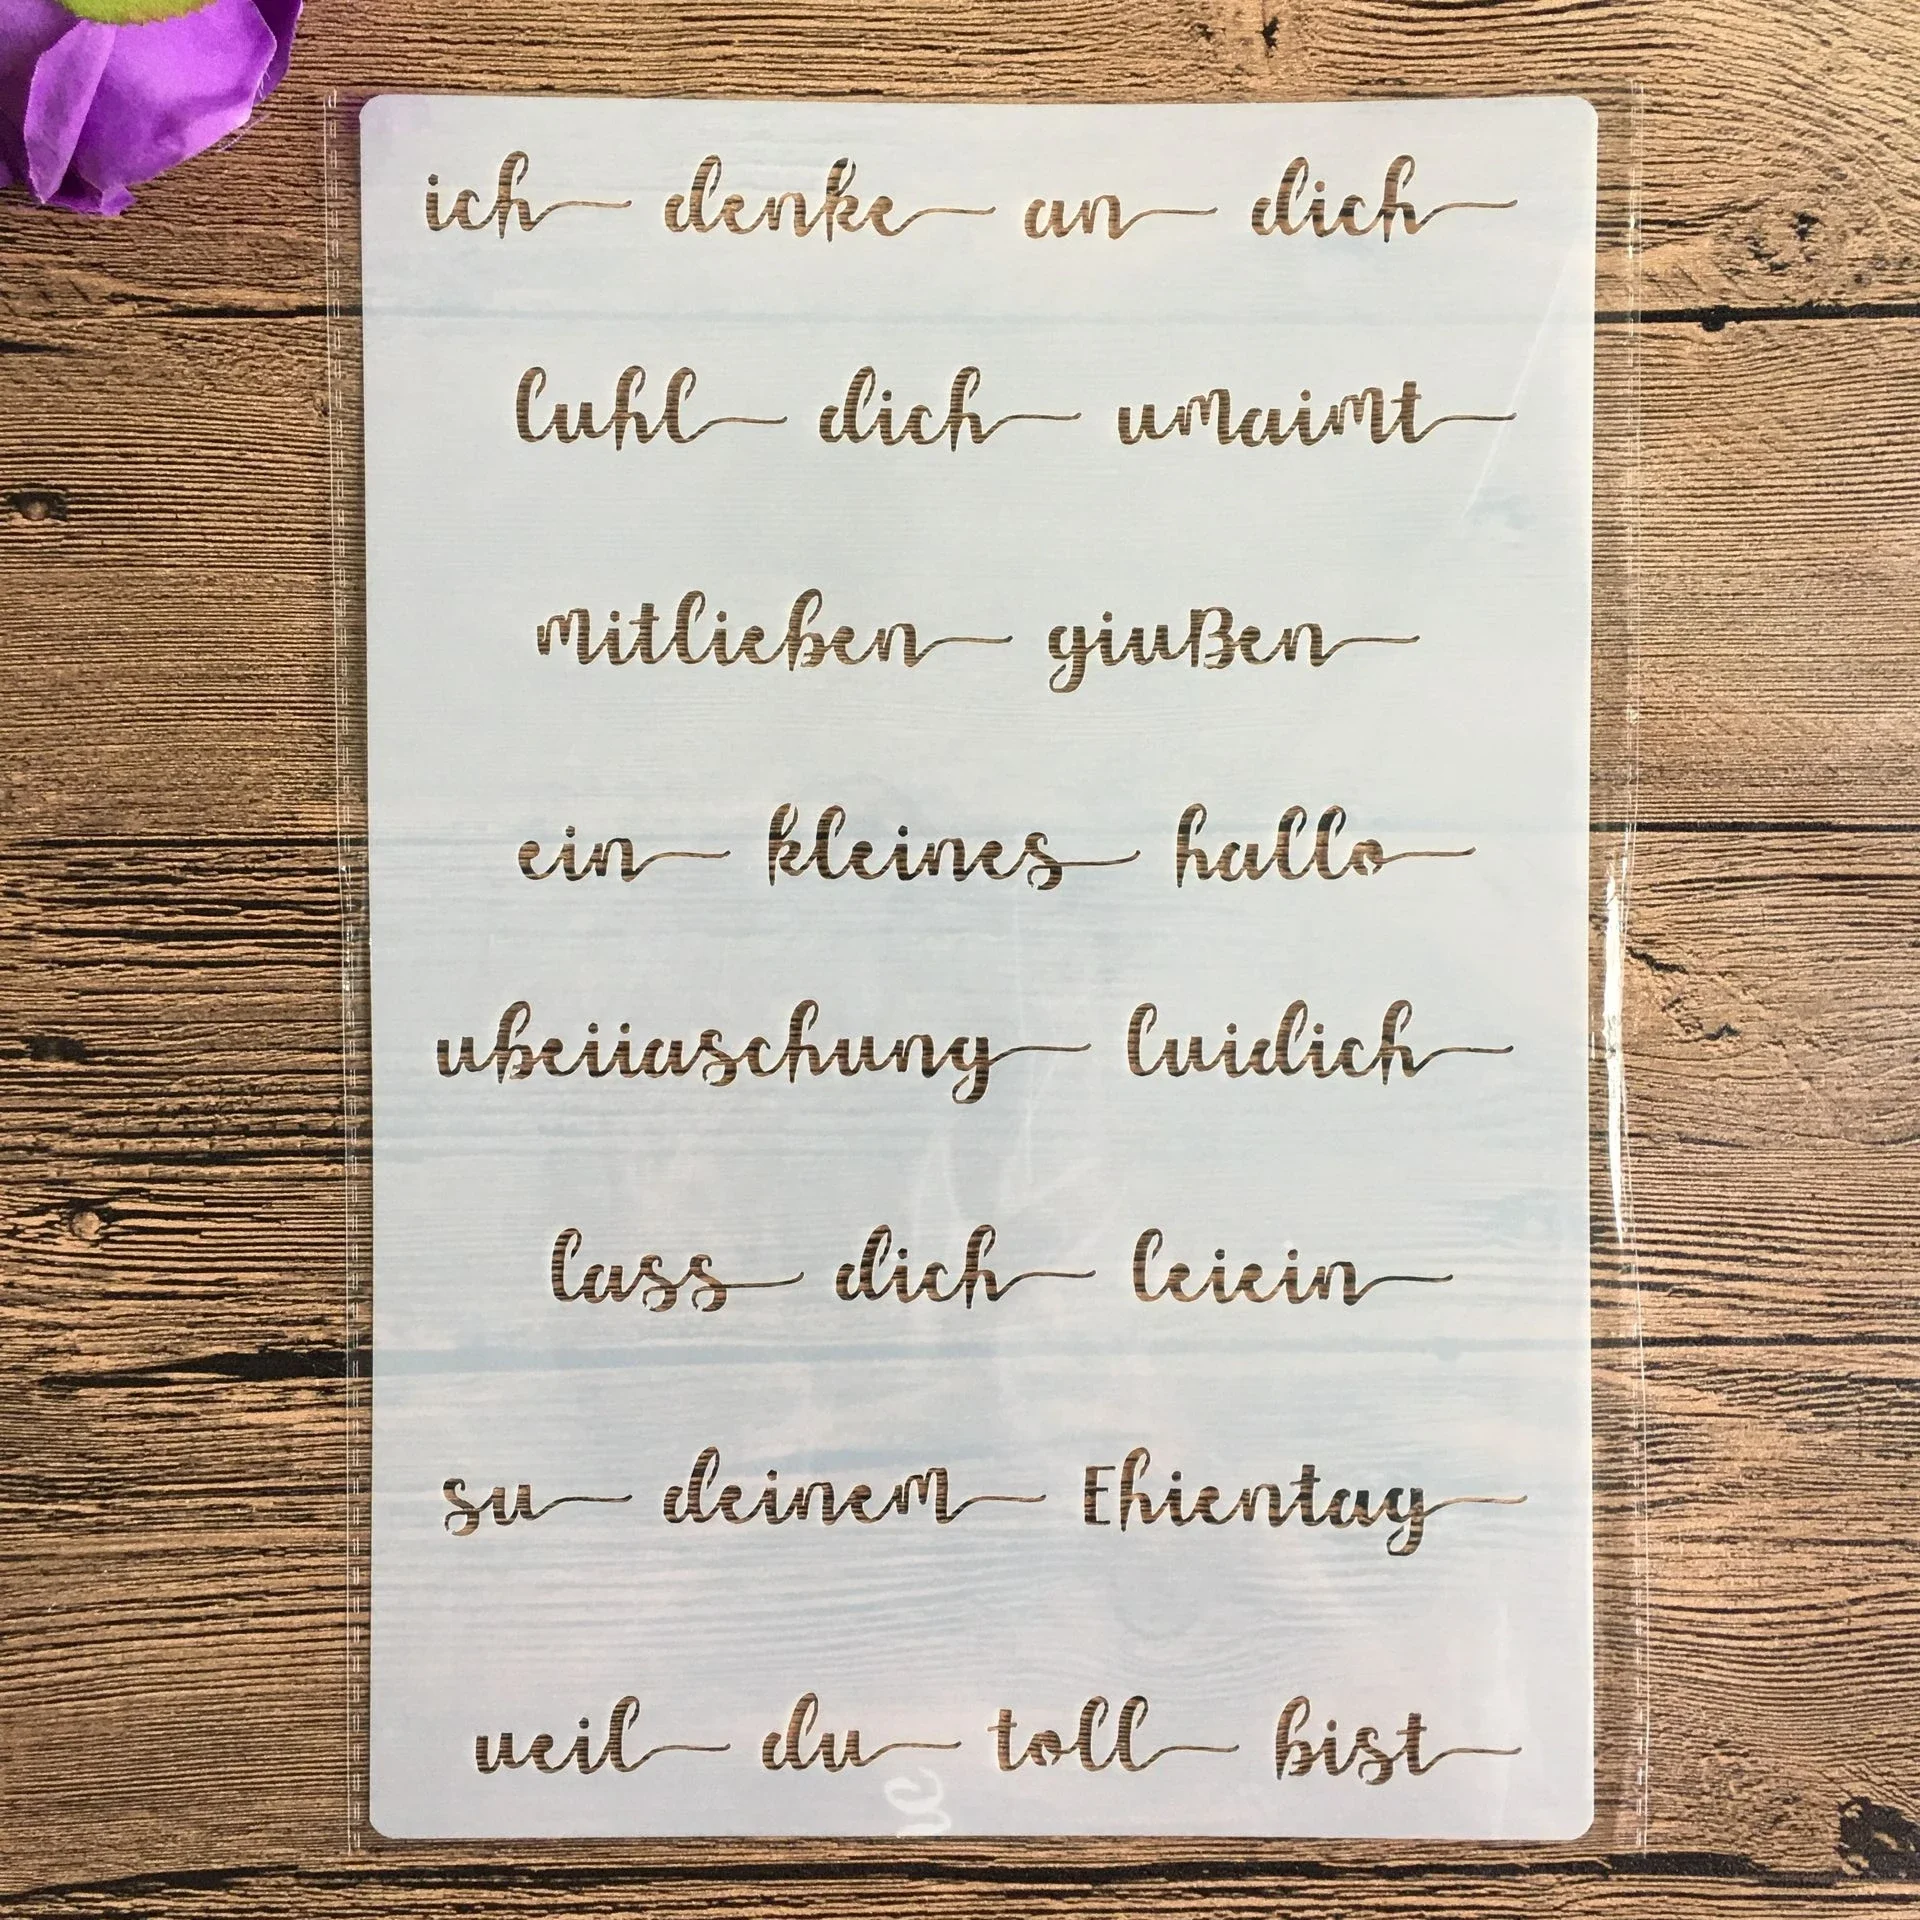 ich denke an dich
luhl dich umaimt
mitlieben giußen
ein kleines hallo
ubeiiaschung luidich
lass dich leiein
su deinem Ehientag
ueil du toll bist